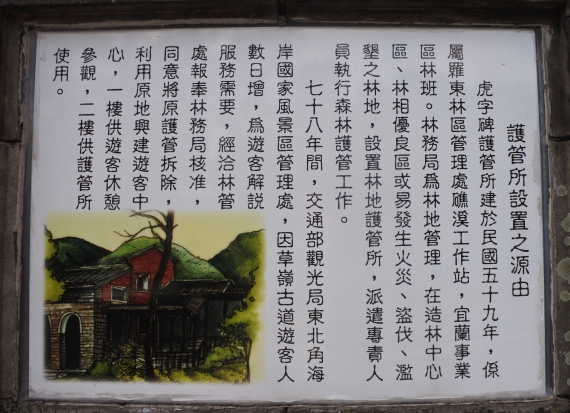 護管所設置之源由
虎字碑護管所建於民國五十九年，係
屬羅東林區管理處礁溪工作站，宜蘭事業
區林班。林務局為林地管理，在造林中心
區、林相優良區或易發生火災、盜伐、濫
墾之林地，設置林地護管所，派遣專責人
員執行森林護管工作。
七十八年間，交通部觀光局東北角海
岸國家風景區管理處，因草嶺古道遊客人
數日增，為遊客解說
服務需要，經洽林管
處報奉林務局核准，
同意將原護管拆除，
利用原地興建遊客中
心，一樓供遊客休憩
參觀，二樓供護管所
使用。